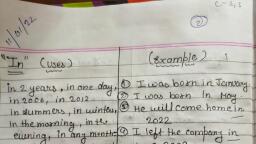 C-2,3
②
11/01/22
"In" (Uses)
(Example)
In 2 years, in one day,
① I was born in January
in 2000, in 2012
② I was born in May
in summers, in winter,
③ He will come home in
2022
In the morning, in the
evening, in any month
④ I left the company in